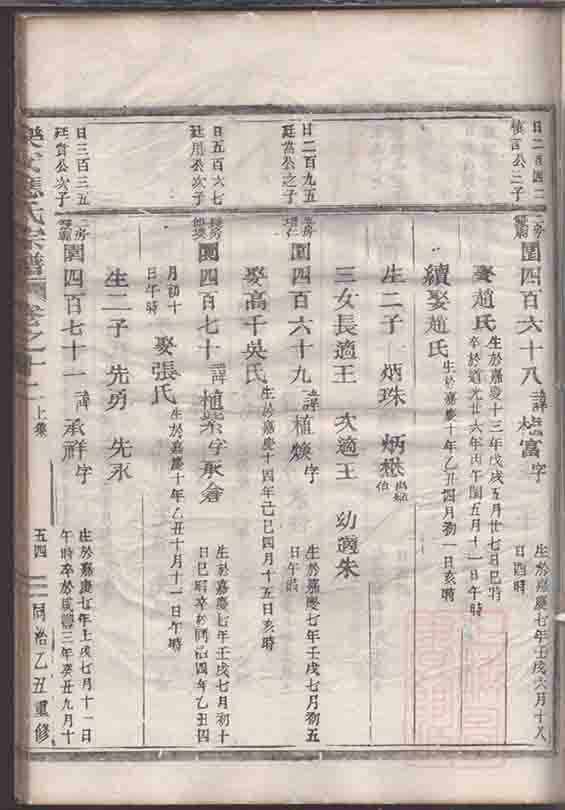 日二百四二
慎言公二子
園四百六十八 諱 富 字 生於嘉慶七年壬戌六月十八
日酉時
娶趙氏 生於嘉慶十三年戊戌五月廿七日巳時
卒於道光廿六年丙午閏五月十一日午時
續娶趙氏 生於嘉慶十年乙丑四月初一日亥時
生二子 炳珠 炳懋 出繼
三女長適王 次適王 幼適朱
日二百九五
廷當公之子
園四百六十九 諱植煥字 生於嘉慶七年壬戌七月初五
日午時
娶高千吳氏 生於嘉慶十四年己巳四月十五日亥時
日五百六七
廷用公次子
園四百七十 諱植 字承倉 生於嘉慶七年壬戌七月初十
日巳時卒於同治四年乙丑四
月初十
日午時
娶張氏 生於嘉慶十年乙丑十月十一日午時
生二子 先勇 先永
日三百三五
廷賞公次子
二房
園四百七十一 諱承祥字 生於嘉慶七年上戌七月十一日
午時卒於咸豐三年癸丑九月十
氏宗譜 卷之十二 上集 五四 同治乙丑重修